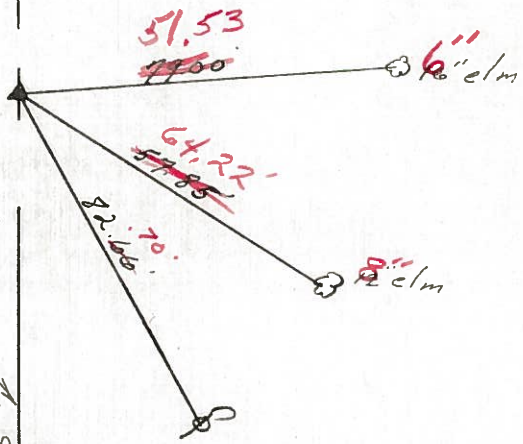 51.53
77.00
6" elm
64.22
57.85
8" elm
82.66
.70